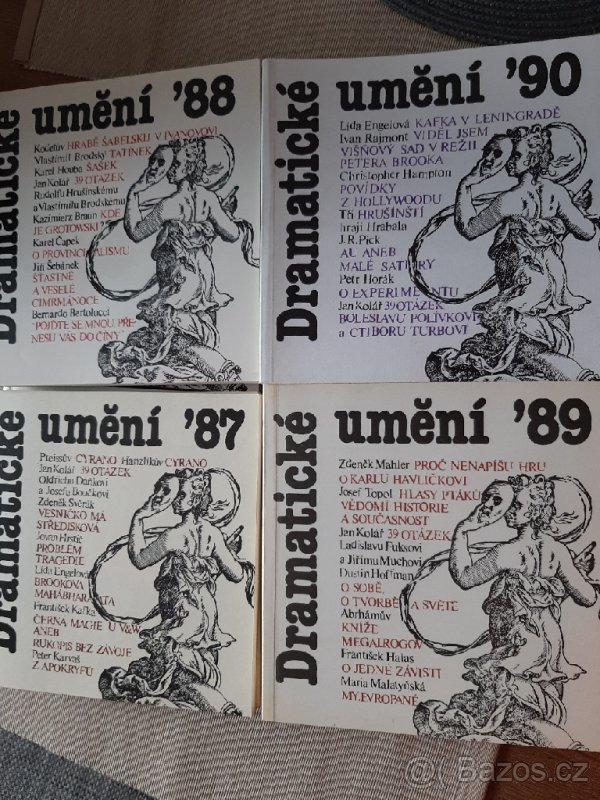 Dramatické
umění '88
Kočetův HRABĚ ŠABELSKIJ V IVANOVOVI
Vlastimil Brodský TATÍNEK
Karel Houba ŠAŠEK
Jan Kolář 39 OTÁZEK
Rudolfu Hrušínskému
a Vlastimilu Brodskému
Kazimierz Braun KDE
JE GROTOWSKI?
Karel Čapek
O PROVINCIALISMU
Jiří Šebánek
ŠŤASTNÉ
A VESELÉ
CIMRMANOCE
Bernardo Bertolucci
"POJĎTE SE MNOU, PŘE-
NESU VÁS DO ČÍNY"
Dramatické
umění '90
Lída Engelová KAFKA V LENINGRADĚ
Ivan Rajmont VIDĚL JSEM
VIŠŇOVÝ SAD V REŽII
PETERA BROOKA
Christopher Hampton
POVÍDKY
Z HOLLYWOODU
Tři HRUŠÍNŠTÍ
hrají Hrabala
J.R.Pick
AU ANEB
MALÉ SATIRY
Petr Horák
O EXPERIMENTU
Jan Kolář 39 OTÁZEK
BOLESLAVU POLÍVKOVI
a CTIBORU TURBOVI
Dramatické
umění '87
Preissův CYRANO Hanzlíkův CYRANO
Jan Kolář 39 OTÁZEK
Oldřichu Daňkovi
a Josefu Boučkovi
Zdeněk Svěrák
VESNIČKO MÁ
STŘEDISKOVÁ
Jovan Hristić
PROBLÉM
TRAGÉDIE
Lída Engelová
BROOKOVA
MAHÁBHÁRATA
František Kafka
ČERNÁ MAGIE U V&W
ANEB
RUKOPIS BEZ ZÁVOJE
Peter Karvaš
Z APOKRYFŮ
Dramatické
umění '89
Zdeněk Mahler PROČ NENAPÍŠU HRU
O KARLU HAVLÍČKOVI
Josef Topol HLASY PTÁKŮ
VĚDOMÍ HISTORIE
A SOUČASNOST
Jan Kolář 39 OTÁZEK
Ladislavu Fuksovi
a Jiřímu Muchovi
Dustin Hoffman
O SOBĚ,
O TVORBĚ A SVĚTĚ
Abrhámův
KNÍŽE
MEGALROGOV
František Halas
O JEDNÉ ZÁVISTI
Maria Malatyňská
MY, EVROPANÉ
Bazos.cz